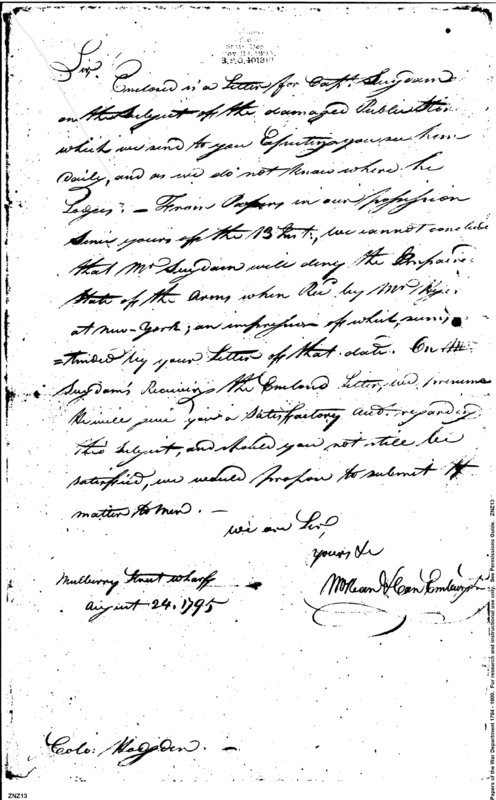 State Dep.
Sir,
Enclosed is a Letter for Capt. Suydam
on the Subject of the damaged Publication
which we send to you Expecting you see him
daily, and as we do not know where he
Lodges. — From Papers in our possession
Since yours of the 13 Inst., we cannot conclude
that Mr Suydam will deny the
State of the Arms when Recd by Mr
at New-York; an impression of which,
by your Letter of that date. On Mr
Suydam's Receiving the Enclosed Letter, we presume
he will give you a Satisfactory regarding
this subject, and should you not still be
satisfied, we would propose to submit the
matter to men. —
We are Sir,
yours &c
Mulberry Street wharff
August 24, 1795
Colo: Hogsden. —
Papers of the War Department 1784 - 1800. For research and instructional use only. See Permissions Guide. ZNZ13
ZNZ13